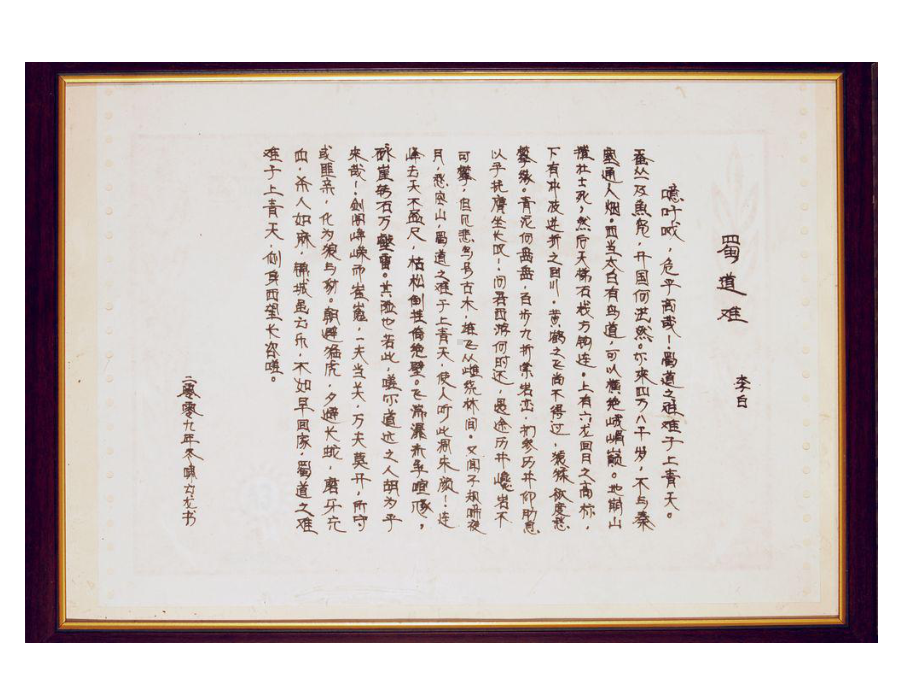 蜀道难
李白
噫吁戏，危乎高哉！蜀道之难难于上青天。
蚕丛及鱼凫，开国何茫然。尔来四万八千岁，不与秦
塞通人烟。西当太白有鸟道，可以横绝峨嵋巅。地崩山
摧壮士死，然后天梯石栈方钩连。上有六龙回日之高标，
下有冲波逆折之回川。黄鹤之飞尚不得过，猿猱欲度愁
攀缘。青泥何盘盘，百步九折萦岩峦，扪参历井仰胁息
以手抚膺坐长叹！问君西游何时还，畏途巉岩不
可攀，但见悲鸟号古木，雄飞从雌绕林间。又闻子规啼夜
月，愁空山，蜀道之难于上青天，使人听此凋朱颜！连
峰去天不盈尺，枯松倒挂倚绝壁。飞湍瀑流争喧豗。
砯崖转石万壑雷。其险也若此，嗟尔道远之人胡为乎
来哉！剑阁峥嵘而崔嵬，一夫当关，万夫莫开，所守
或匪亲，化为狼与豺。朝避猛虎，夕避长蛇，磨牙允
血，杀人如麻，锦城虽云乐，不如早回家，蜀道之难
难于上青天，侧身西望长咨嗟。
二零零九年冬 书